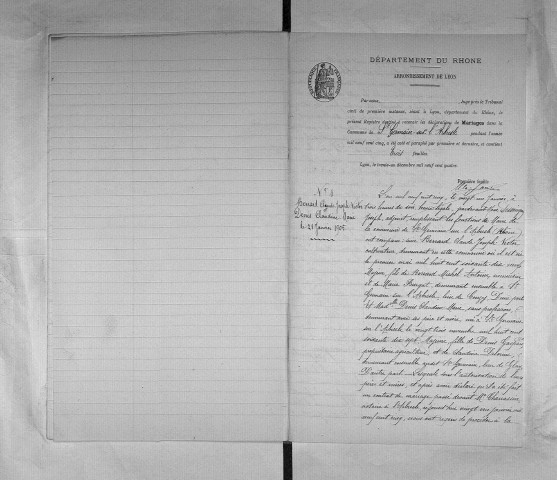 DÉPARTEMENT DU RHONE
ARRONDISSEMENT DE LYON
Par nous, Juge près le Tribunal
civil de première instance, séant à Lyon, département du Rhône, le
présent Registre destiné à recevoir les déclarations de Mariages dans la
Commune de St Germain-sur-l'Arbresle pendant l'année
mil neuf cent cinq, a été coté et paraphé par première et dernière, et contient
trois feuilles
Lyon, le trente-un décembre mil neuf cent quatre.
Première feuille
N° 1
Bernard Claude Joseph Victor
&
Denis Claudine Marie
le 21 janvier 1905
L'an mil neuf cent cinq, le vingt un janvier, à
trois heures du soir, par devant nous
Joseph, adjoint remplissant les fonctions de Maire de
la commune de St Germain sur l'Arbresle (Rhône)
ont comparu Bernard Claude Joseph Victor
cultivateur, demeurant en cette commune où il est né
le premier mai mil huit cent soixante dix
Majeur, fils de Bernard Michel Antoine
et de Marie demeurant ensemble à St
Germain sur l'Arbresle, D'une part
Et Melle Denis Claudine Marie, sans profession
demeurant avec ses père et mère, née à St Germain
sur l'Arbresle le vingt trois novembre mil huit cent
soixante dix sept, Majeure fille de Denis
propriétaire agriculteur, et de Claudine
demeurant ensemble audit St Germain, lieu de
D'autre part. Lesquels sous l'autorisation de leurs
père et mère, et après avoir déclaré qu'il a été fait
un contrat de mariage passé devant Me
notaire à l'Arbresle, vingt un janvier mil
neuf cent cinq, nous ont requis de procéder à la